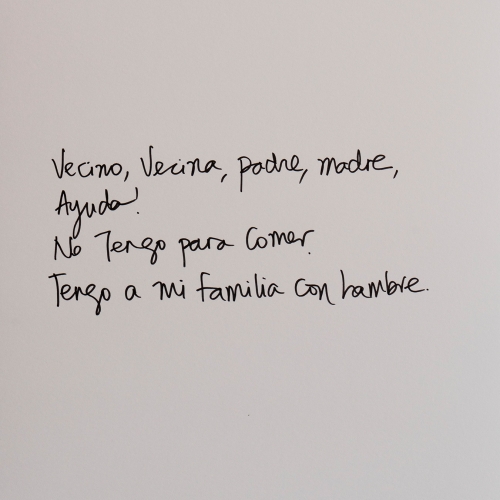 Vecino, Vecina, padre, madre,
Ayuda!
No Tengo para Comer.
Tengo a mi familia con hambre.